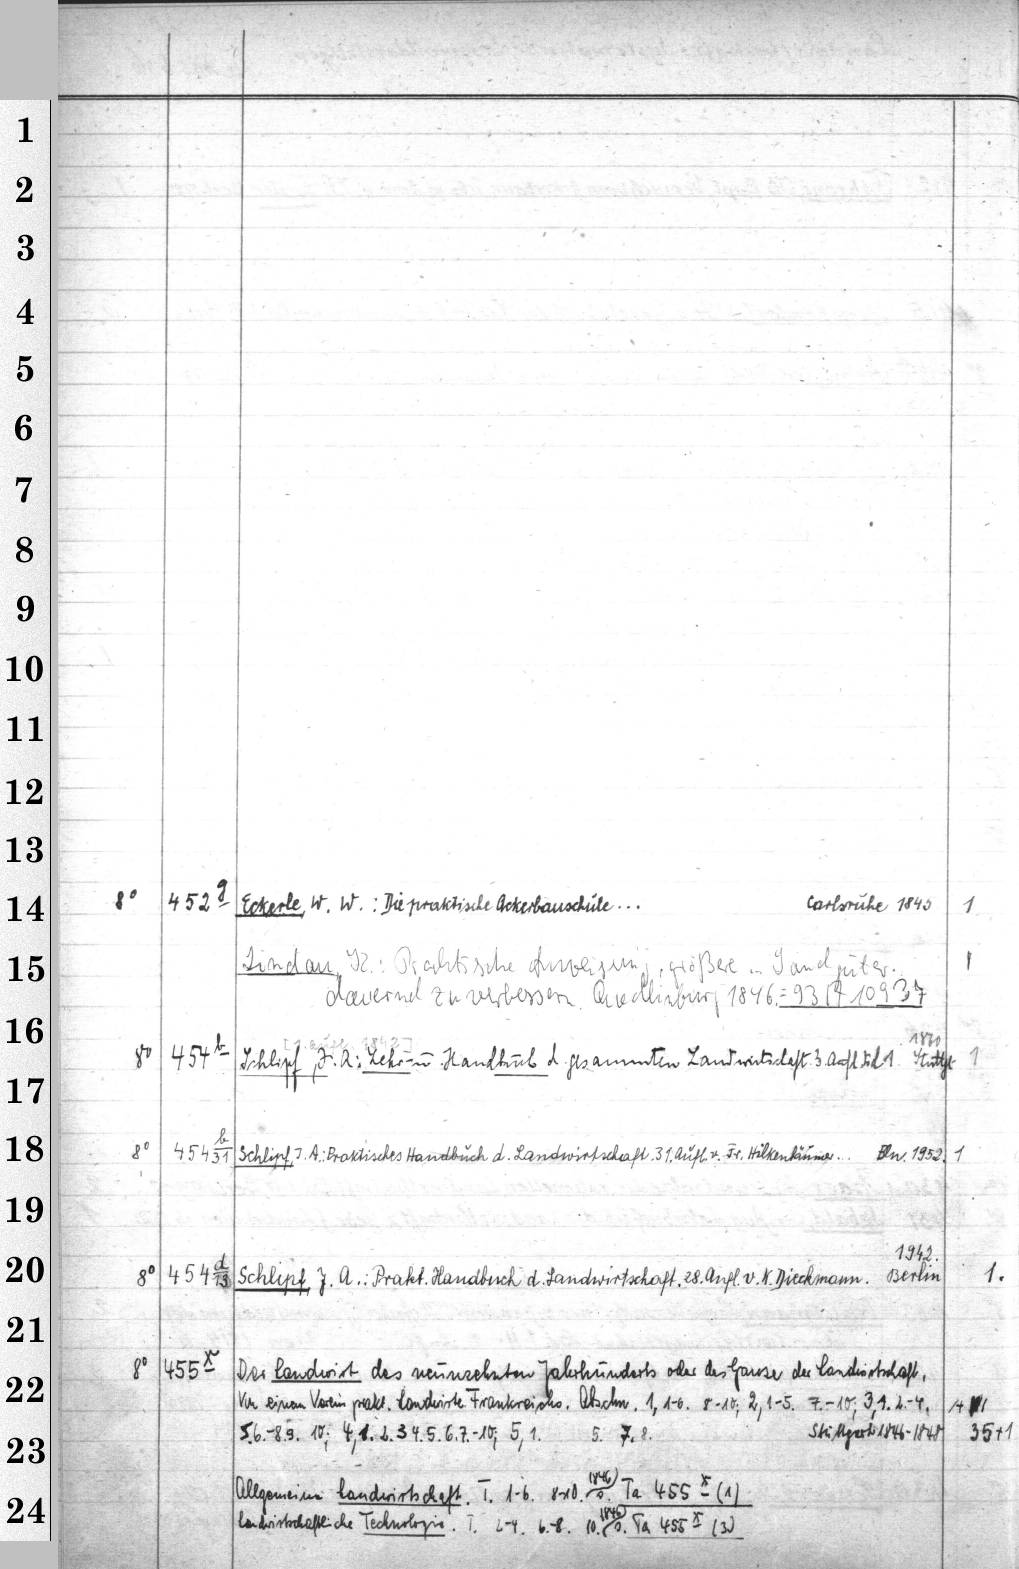 1
2
3
4
5
6
7
8
9
10
11
12
13
14 8° 452 g Eckerle, W. W.: Die praktische Ackerbauschule... Carlsruhe 1843 1
15 Lindau, K.: Praktische Anweisung, größere .. Landgüter 1
dauernd zu verbessern. Quedlinburg 1846. = 93/A 10937
16 [1. Aufl. 1842] 1870
8° 454 b Schlipf, J. A.: Lehr- u. Handbuch d. gesammten Landwirtschaft. 3. Aufl. Bd 1. Stuttgt 1
17
18 8° 454 b/31 Schlipf, J. A.: Praktisches Handbuch d. Landwirtschaft. 31. Aufl. v. Fr. Hilkenbäumer... Bln. 1952. 1
19
1942.
20 8° 454 d Schlipf, J. A.: Prakt. Handbuch d. Landwirtschaft. 28. Aufl. v. Dieckmann. Berlin 1.
21
8° 455 x Der Landwirt des neunzehnten Jahrhunderts oder das Ganze der Landwirtschaft.
22 Von einem Verein prakt. Landwirte Frankreichs. Abschn. 1, 1-6. 8-10; 2, 1-5. 7.-10; 3, 1. 2.-4.
23 5.6.-8.9. 10; 4, 1. 2. 3 4. 5. 6. 7.-10; 5, 1. 5. 7. 8. Stuttgart 1846-1848 35+1
(1846)
Allgemeine Landwirtschaft. T. 1-6. 8-10. s. Ta 455 x (1)
24 (1846)
Landwirtschaftliche Technologie. T. 2-4. 6.-8. 10. s. Ta 455 x (3)